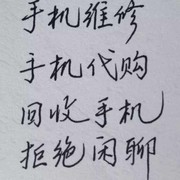 手机维修
手机代购
回收手机
拒绝闲聊